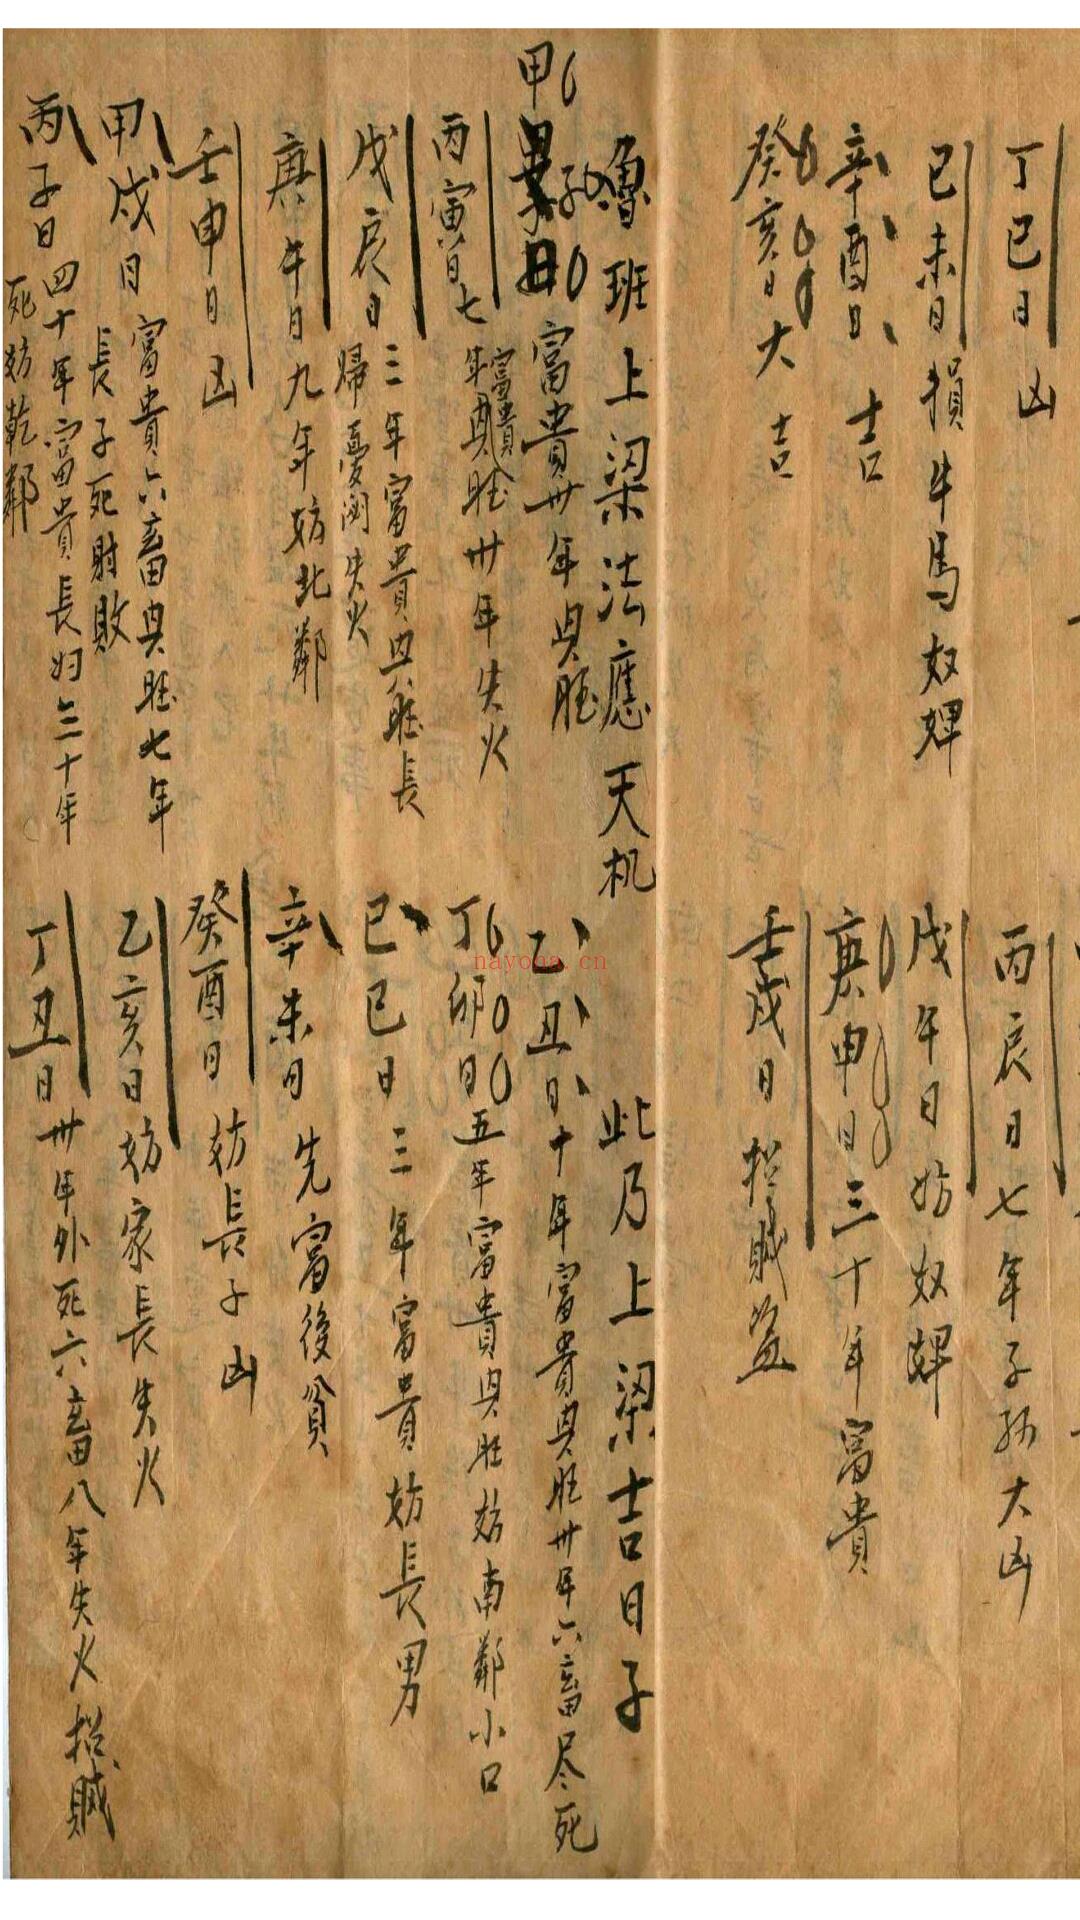 丁巳日 凶
丙辰日七年子孫大凶
己未日損牛馬奴婢
戊午日妨奴婢
辛酉日 吉
庚申日三十年富貴
癸亥日大吉
壬戌日招賊盜
魯班上梁法應天机 此乃上梁吉日子
甲子日富貴卅年興旺
乙丑日十年富貴興旺卅年六畜尽死
丙寅日七年富貴興旺卅年失火
丁卯日五年富貴興旺妨南鄰小口
戊辰日三年富貴興旺長
婦憂 失火
己巳日三年富貴妨長男
庚午日九年妨北鄰
辛未日先富後貧
壬申日凶
癸酉日妨長子凶
甲戌日富貴六畜興旺七年
長子死財敗
乙亥日妨家長失火
丙子日四十年富貴長妇三十年
死妨乾鄰
丁丑日卅年外死六畜八年失火招賊
nayona.cn